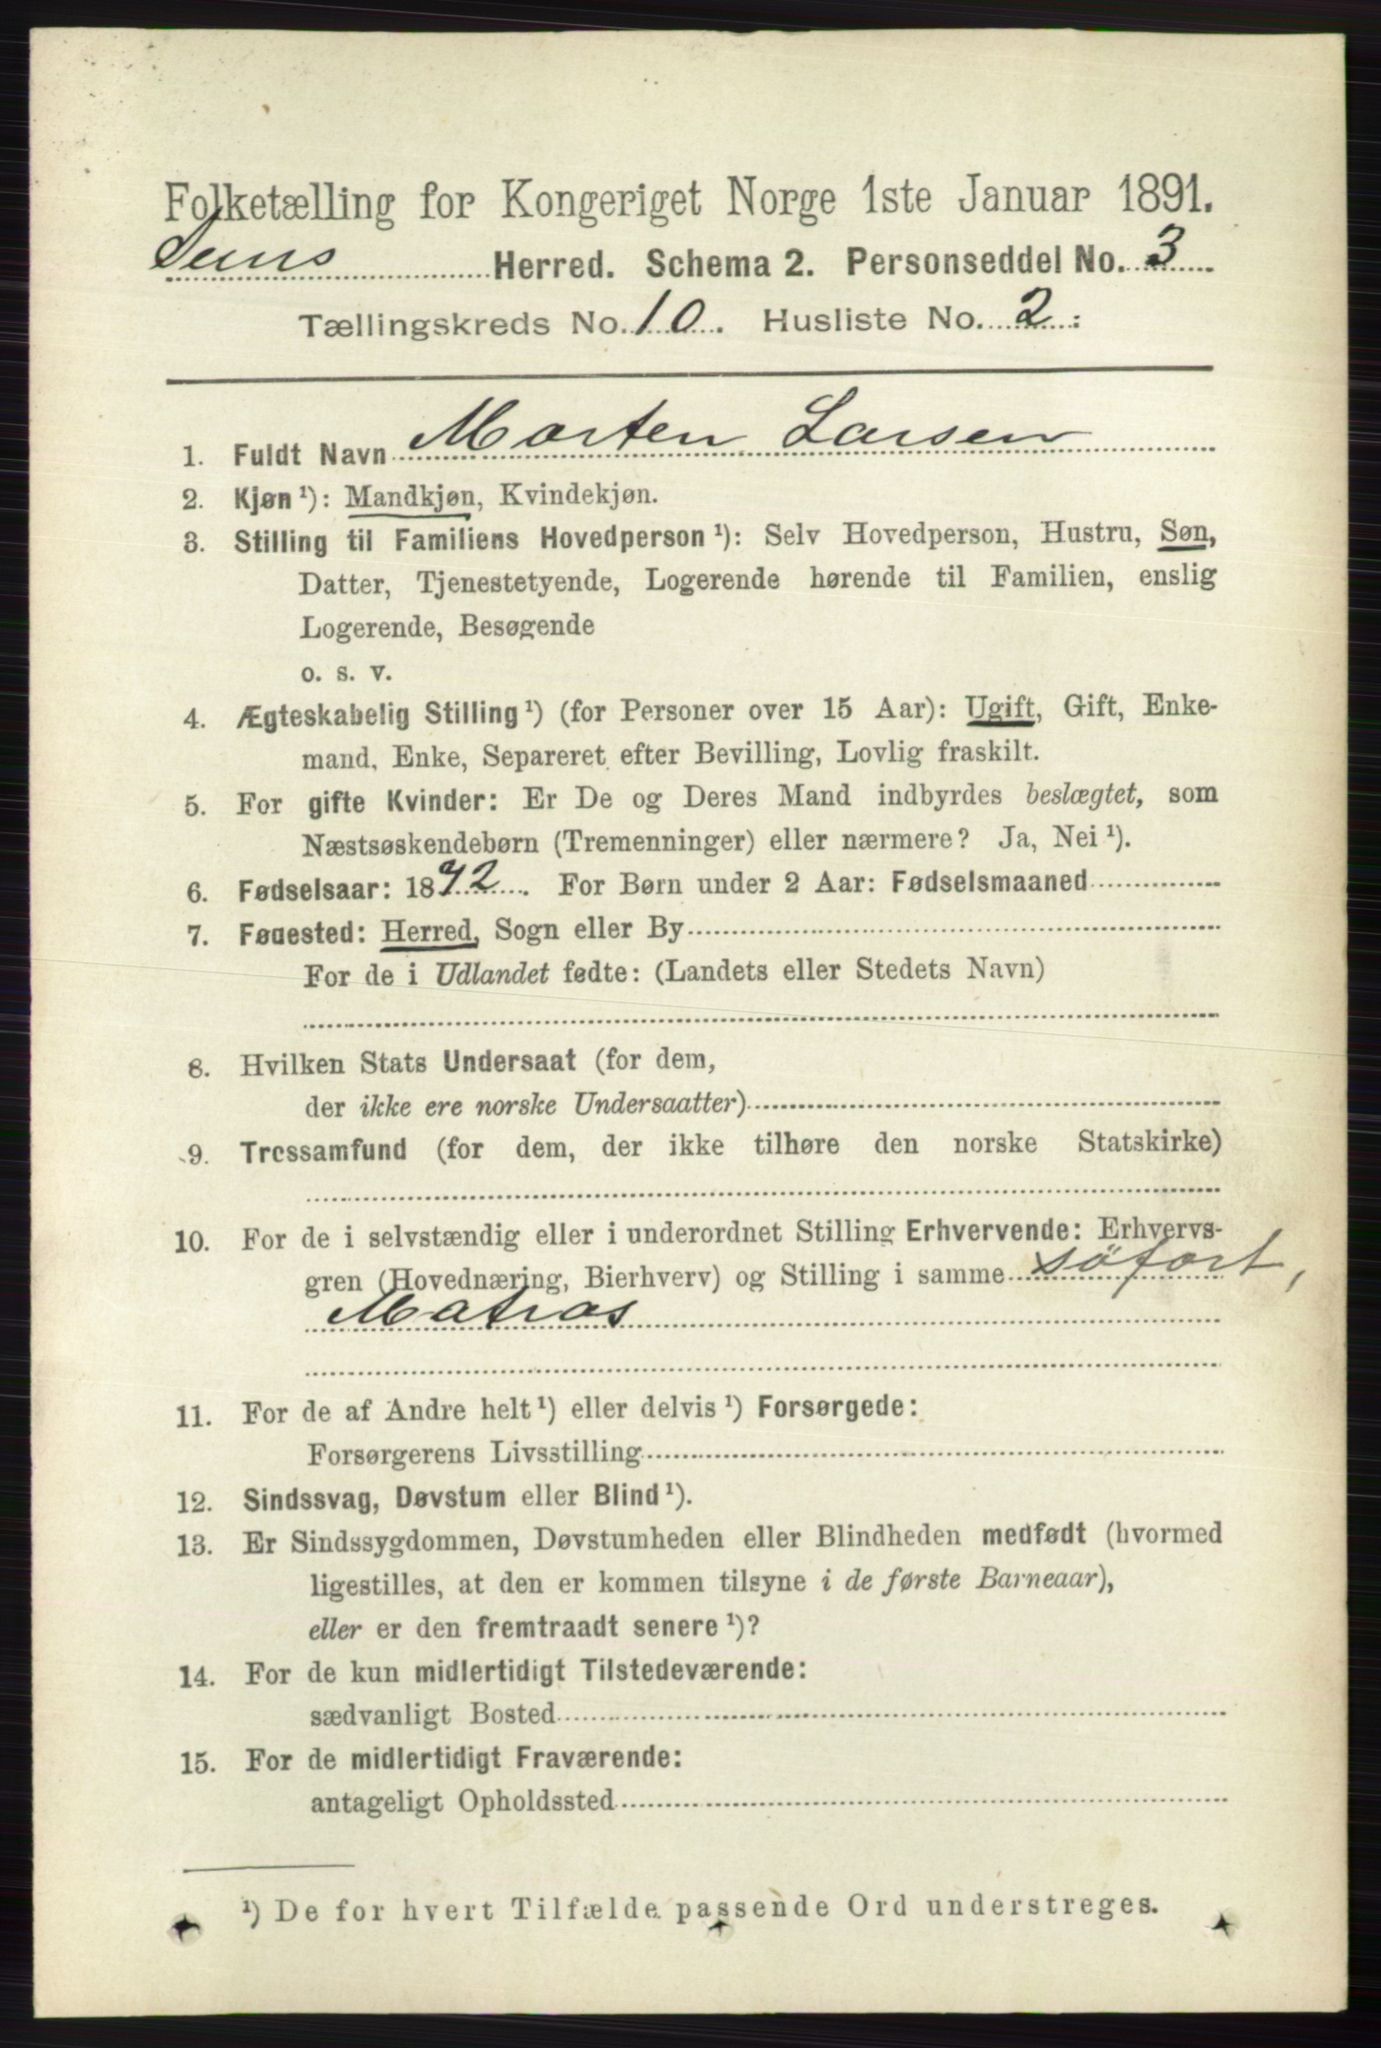 Folketælling for Kongeriget Norge 1ste Januar 1891.
Sems Herred. Schema 2. Personseddel No. 3
Tællingskreds No. 10. Husliste No. 2:
1. Fuldt Navn Morten Larsen
2. Kjøn ¹): Mandkjøn, Kvindekjøn.
3. Stilling til Familiens Hovedperson ¹): Selv Hovedperson, Hustru, Søn,
Datter, Tjenestetyende, Logerende hørende til Familien, enslig
Logerende, Besøgende
o. s. v.
4. Ægteskabelig Stilling ¹) (for Personer over 15 Aar): Ugift, Gift, Enke-
mand, Enke, Separeret efter Bevilling, Lovlig fraskilt.
5. For gifte Kvinder: Er De og Deres Mand indbyrdes beslægtet, som
Næstsøskendebørn (Tremenninger) eller nærmere? Ja, Nei ¹).
6. Fødselsaar: 1872. For Børn under 2 Aar: Fødselsmaaned
7. Fødested: Herred, Sogn eller By
For de i Udlandet fødte: (Landets eller Stedets Navn)
8. Hvilken Stats Undersaat (for dem,
der ikke ere norske Undersaatter)
9. Trossamfund (for dem, der ikke tilhøre den norske Statskirke)
10. For de i selvstændig eller i underordnet Stilling Erhvervende: Erhvervs-
gren (Hovednæring, Bierhverv) og Stilling i samme söfart,
Matros
11. For de af Andre helt ¹) eller delvis ¹) Forsørgede:
Forsørgerens Livsstilling
12. Sindssvag, Døvstum eller Blind ¹).
13. Er Sindssygdommen, Døvstumheden eller Blindheden medfødt (hvormed
ligestilles, at den er kommen tilsyne i de første Barneaar),
eller er den fremtraadt senere ¹)?
14. For de kun midlertidigt Tilstedeværende:
sædvanligt Bosted
15. For de midlertidigt Fraværende:
antageligt Opholdssted
¹) De for hvert Tilfælde passende Ord understreges.